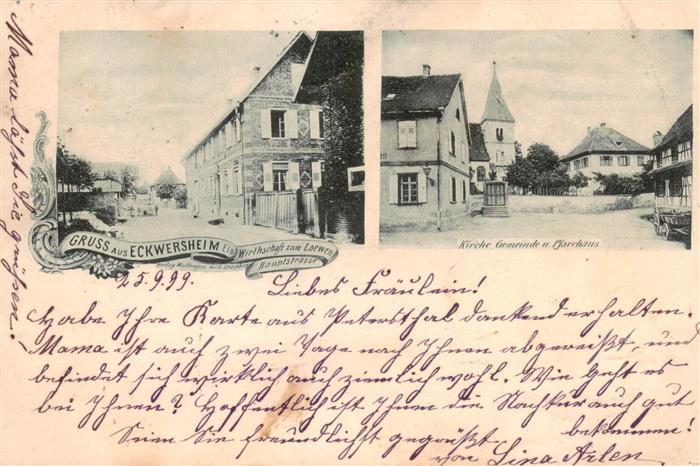 GRUSS AUS ECKWERSHEIM Els.
Wirthschaft zum Loewen
Hauptstrasse
Kirche, Gemeinde u. Pfarrhaus
25.9.99.
Liebes Fräulein!
Habe Ihre Karte aus Petersthal dankend erhalten.
Mama ist auch zwei Tage nach Ihnen abgereißt, und
befindet sich wirklich auch ziemlich wohl. Wie geht es
bei Ihnen? Hoffentlich ist Ihnen die Nachkur auch gut
bekommen!
Seien Sie freundlichst gegrüßt
von Lina Arlen
Mama läßt Sie grüßen!